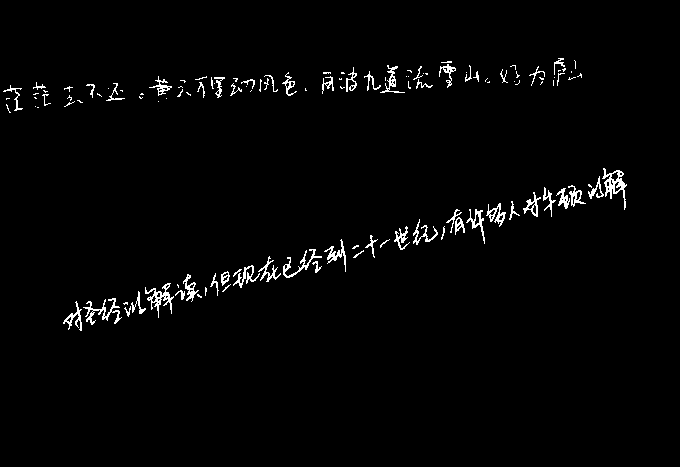 茫茫去不还。黄云万里动风色,白波九道流雪山。好为庐山
对圣经的解读,但现在已经到二十一世纪,有许多人对牛顿的解